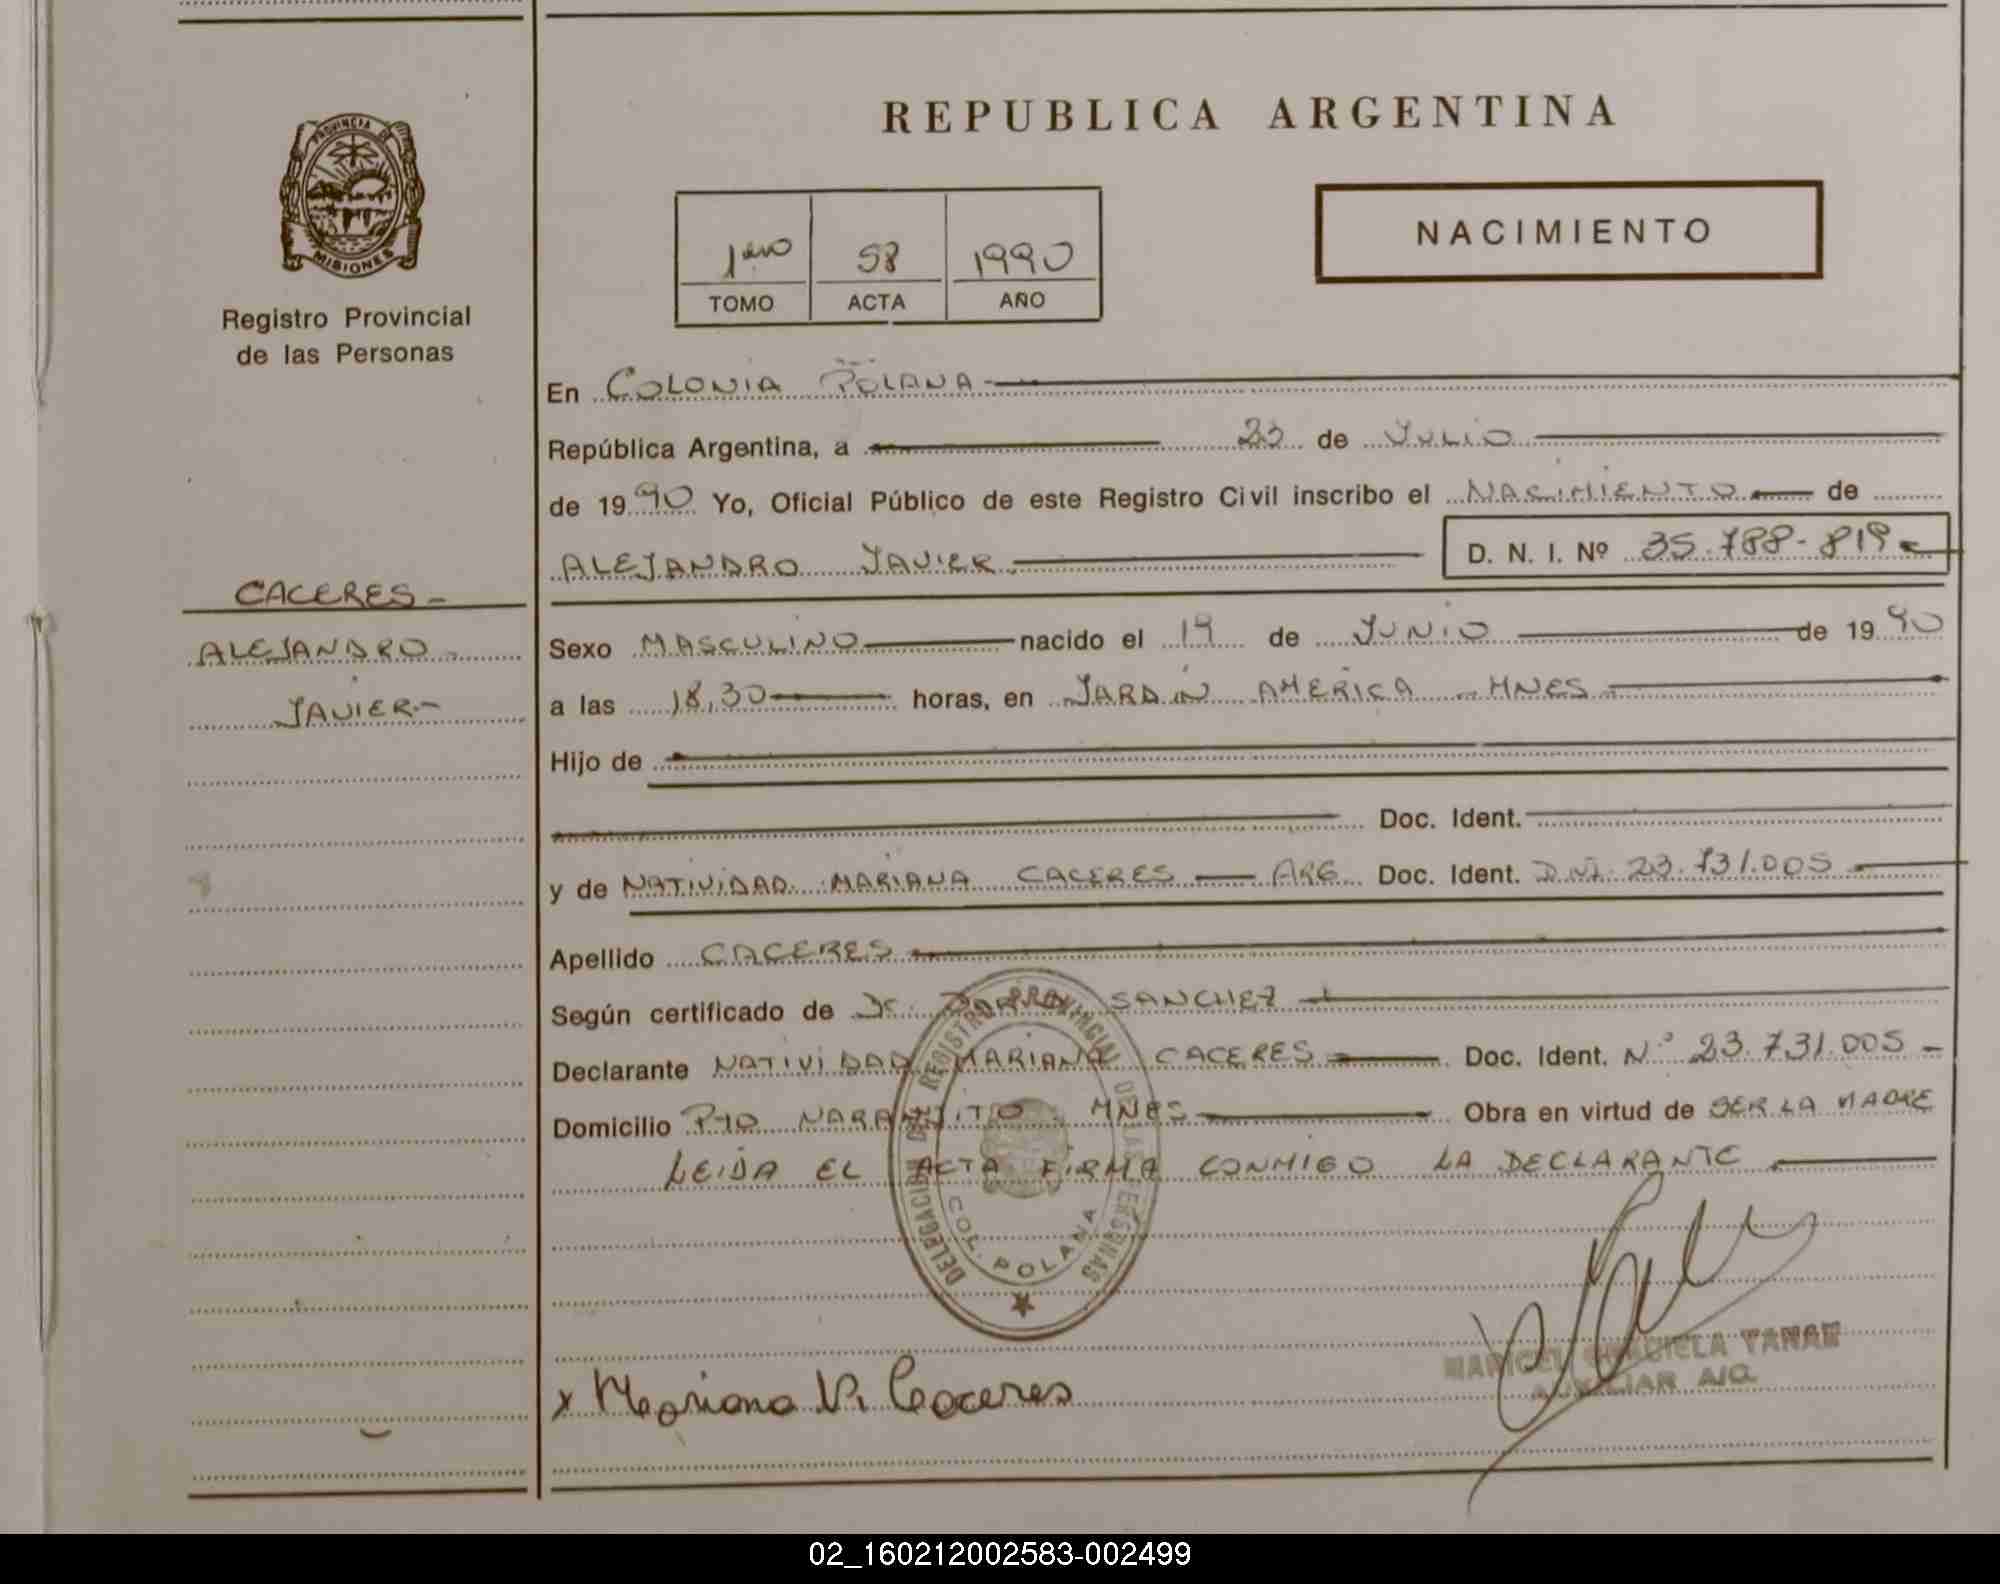 REPUBLICA ARGENTINA
PROVINCIA DE MISIONES
Registro Provincial
de las Personas
1ero 58 1990
TOMO ACTA AÑO
NACIMIENTO
En COLONIA POLANA
República Argentina, a 23 de JULIO
de 1990 Yo, Oficial Público de este Registro Civil inscribo el NACIMIENTO de
ALEJANDRO JAVIER D. N. I. Nº 35.788-819
CACERES
ALEJANDRO
JAVIER
Sexo MASCULINO nacido el 19 de JUNIO de 1990
a las 18,30 horas, en JARDIN AMERICA MNES
Hijo de
Doc. Ident.
y de NATIVIDAD MARIANA CACERES ARG. Doc. Ident. D.N.I. 23.731.005
Apellido CACERES
Según certificado de Dr. SANCHEZ
Declarante NATIVIDAD MARIANA CACERES Doc. Ident. Nº 23.731.005
Domicilio Pto NARANJITO. MNES Obra en virtud de SER LA MADRE
LEIDA EL ACTA FIRMA CONMIGO LA DECLARANTE
DELEGACION DEL REGISTRO PROVINCIAL DE LAS PERSONAS
COL. POLANA
x Mariana N. Caceres
MARICEL GRACIELA TANAN
AUXILIAR
02_160212002583-002499